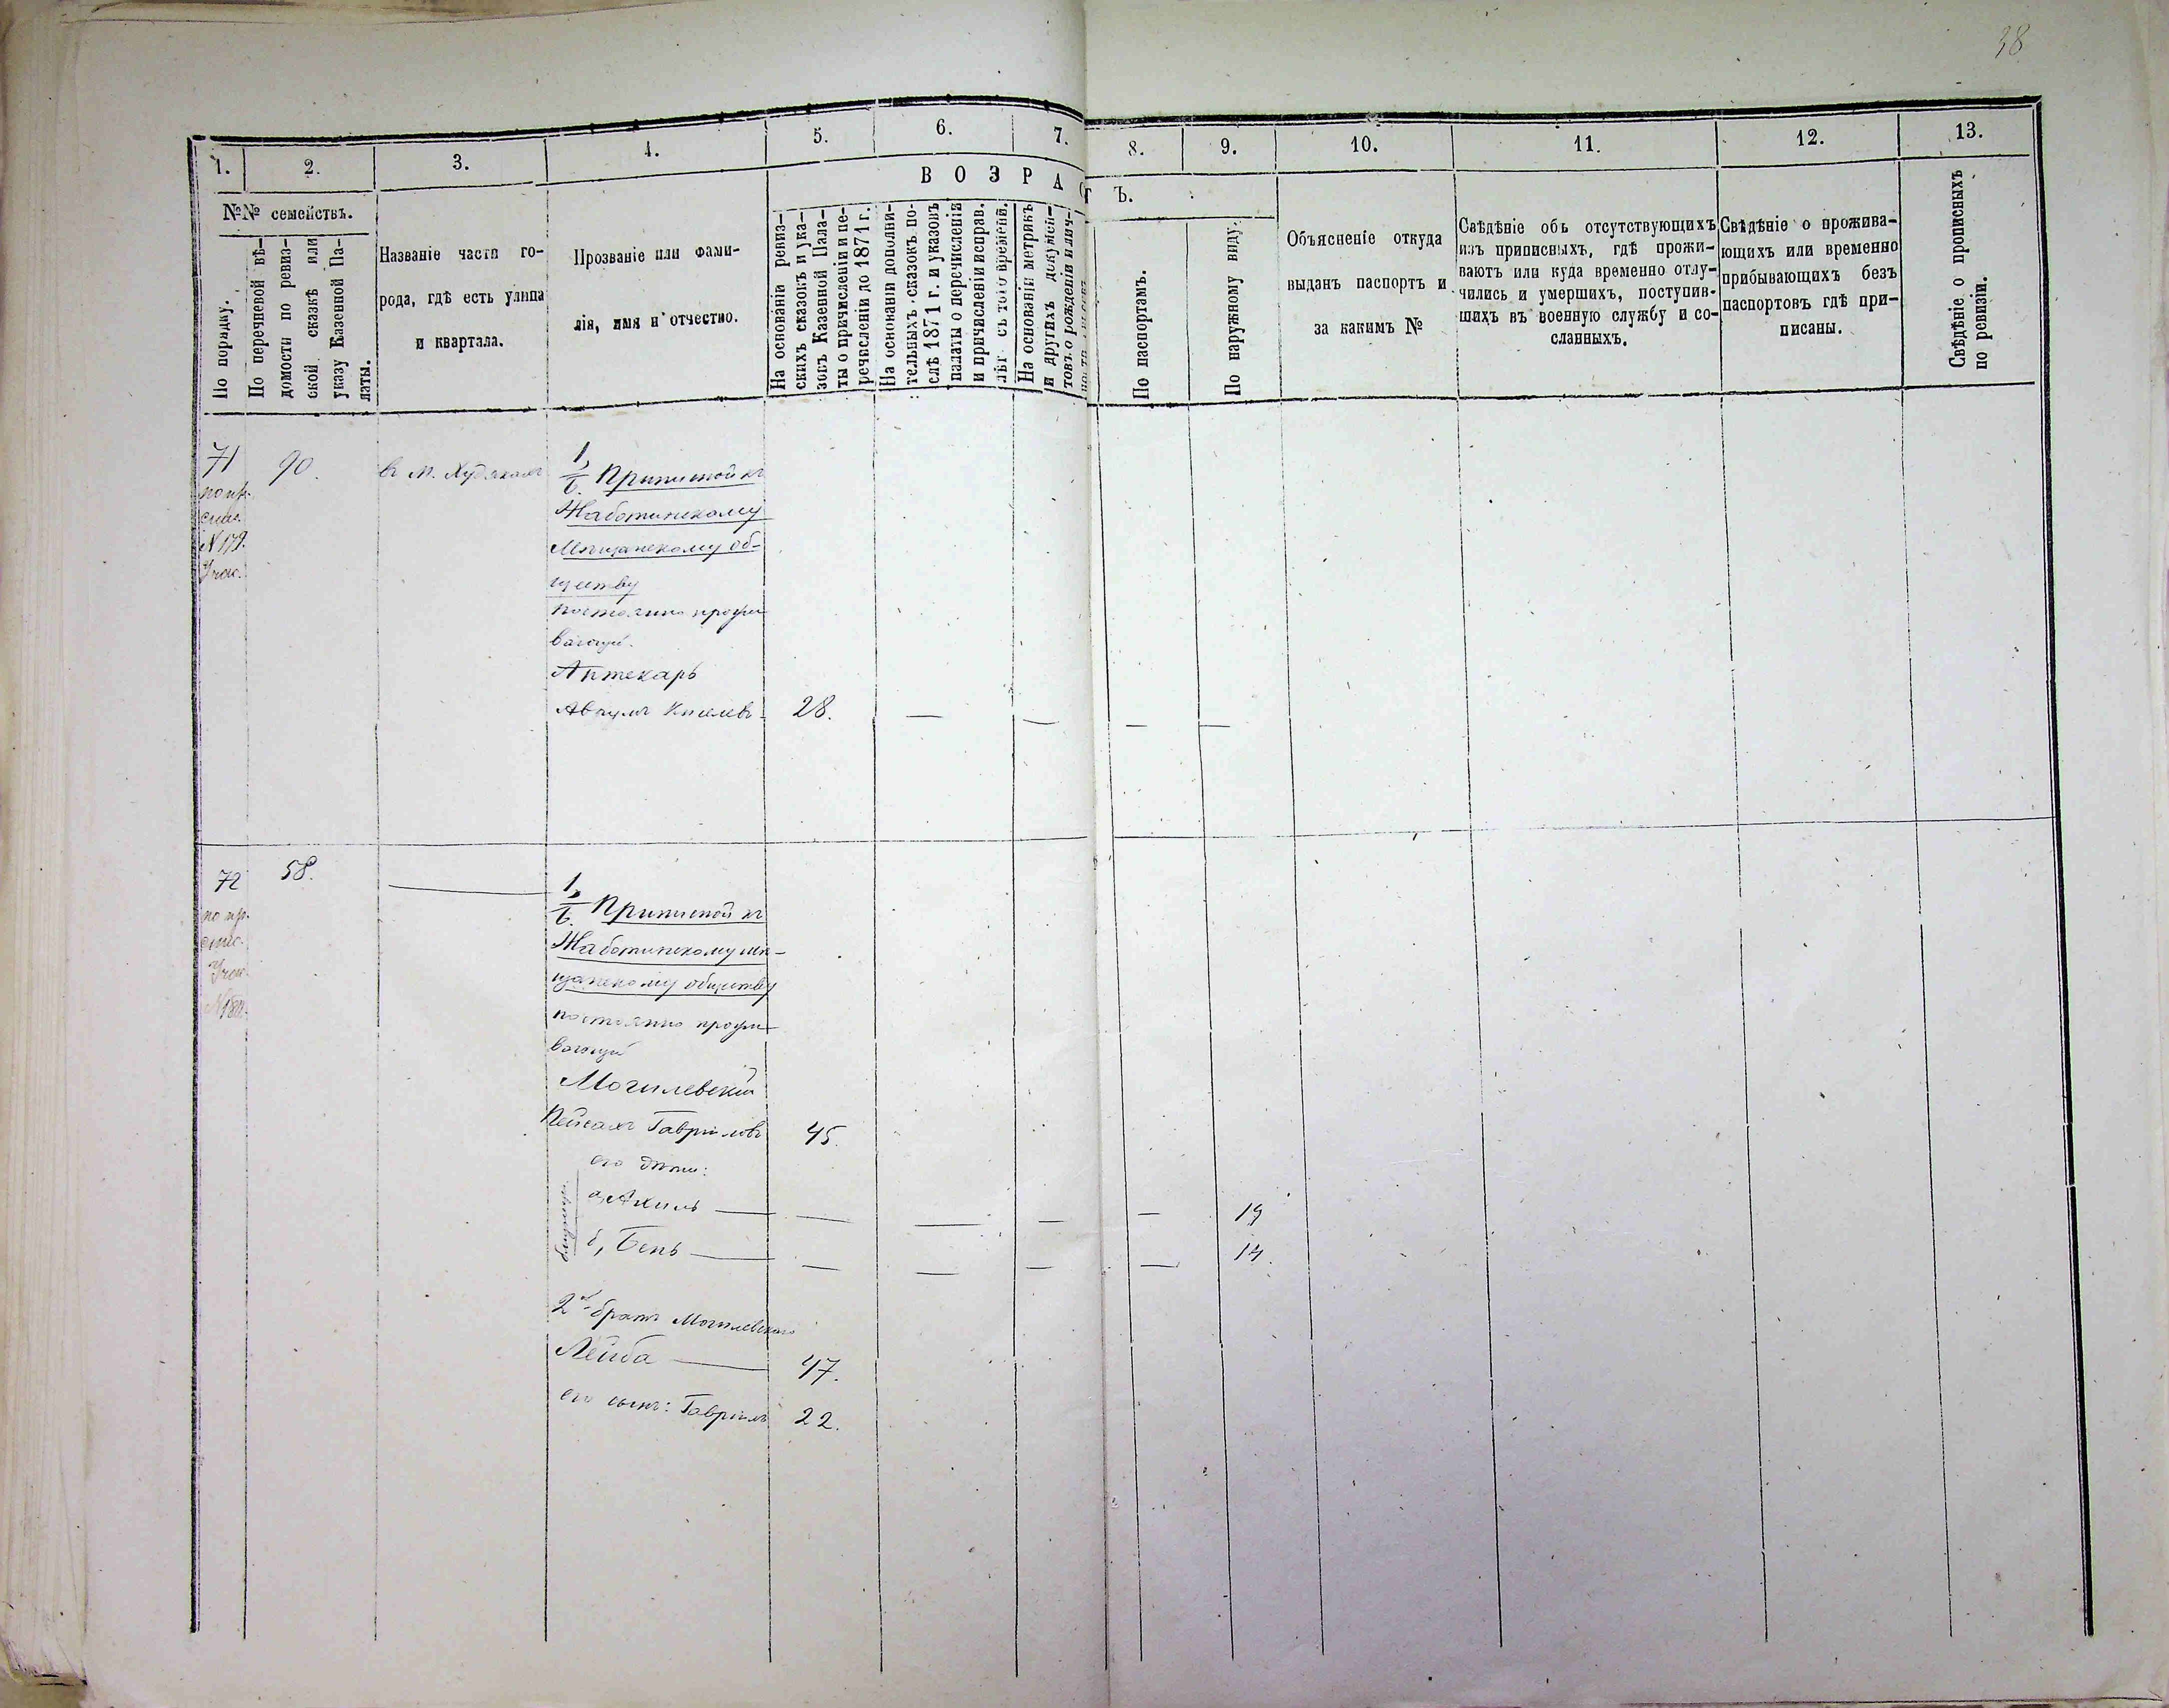 38
1.
2.
3.
4.
5.
6.
7.
8.
9.
10.
11.
12.
13.
№№ семействъ.
По порядку.
По перечневой вѣ-
домости по ревиз-
ской сказкѣ или
указу Казенной Па-
латы.
Названіе части го-
рода, гдѣ есть улица
и квартала.
Прозваніе или фами-
лія, имя и отчество.
ВОЗРАСТЪ.
На основаніи ревиз-
скихъ сказокъ и ука-
зовъ Казенной Пала-
ты о причисленіи и пе-
речисленіи до 1871 г.
На основаніи дополни-
тельныхъ сказокъ по-
слѣ 1871 г. и указовъ
палаты о перечисленіи
и причисленіи исправ.
лѣт. съ того времени.
На основаніи метрикъ
и другихъ докумен-
товъ о рожденіи и лич-
По паспортамъ.
По наружному виду.
Объясненіе откуда
выданъ паспортъ и
за какимъ №
Свѣдѣніе объ отсутствующихъ
изъ приписныхъ, гдѣ прожи-
ваютъ или куда временно отлу-
чились и умершихъ, поступив-
шихъ въ военную службу и со-
сланныхъ.
Свѣдѣніе о прожива-
ющихъ или временно
прибывающихъ безъ
паспортовъ гдѣ при-
писаны.
Свѣдѣніе о прописныхъ
по ревизіи.
71
90.
въ м. Худякахъ
1,
Приписной къ
Жаботинскому
Мѣщанскому об-
ществу
постоянно прожи
вающій.
Аптекарь
Аврумъ Киселевъ
28.
№ 179.
72
58.
1,
Приписной къ
Жаботинскому мѣ-
щанскому обществу
постоянно прожи-
вающій
Могилевскій
Пейсахъ Гавриловъ
45.
его дѣти:
а, Ахиль
19
б, Бень
14.
2й братъ Могилевскаго
Лейба
47.
его сынъ: Гаврiилъ
22.